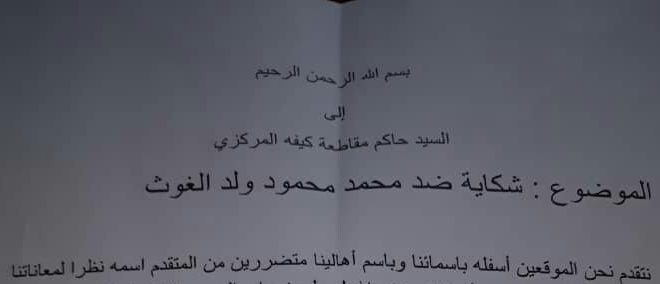 بسم الله الرحمن الرحيم
إلى
السيد حاكم مقاطعة كيفه المركزي
الموضوع : شكاية ضد محمد محمود ولد الغوث
نتقدم نحن الموقعين أسفله باسمائنا وباسم أهالينا متضررين من المتقدم اسمه نظرا لمعاناتنا